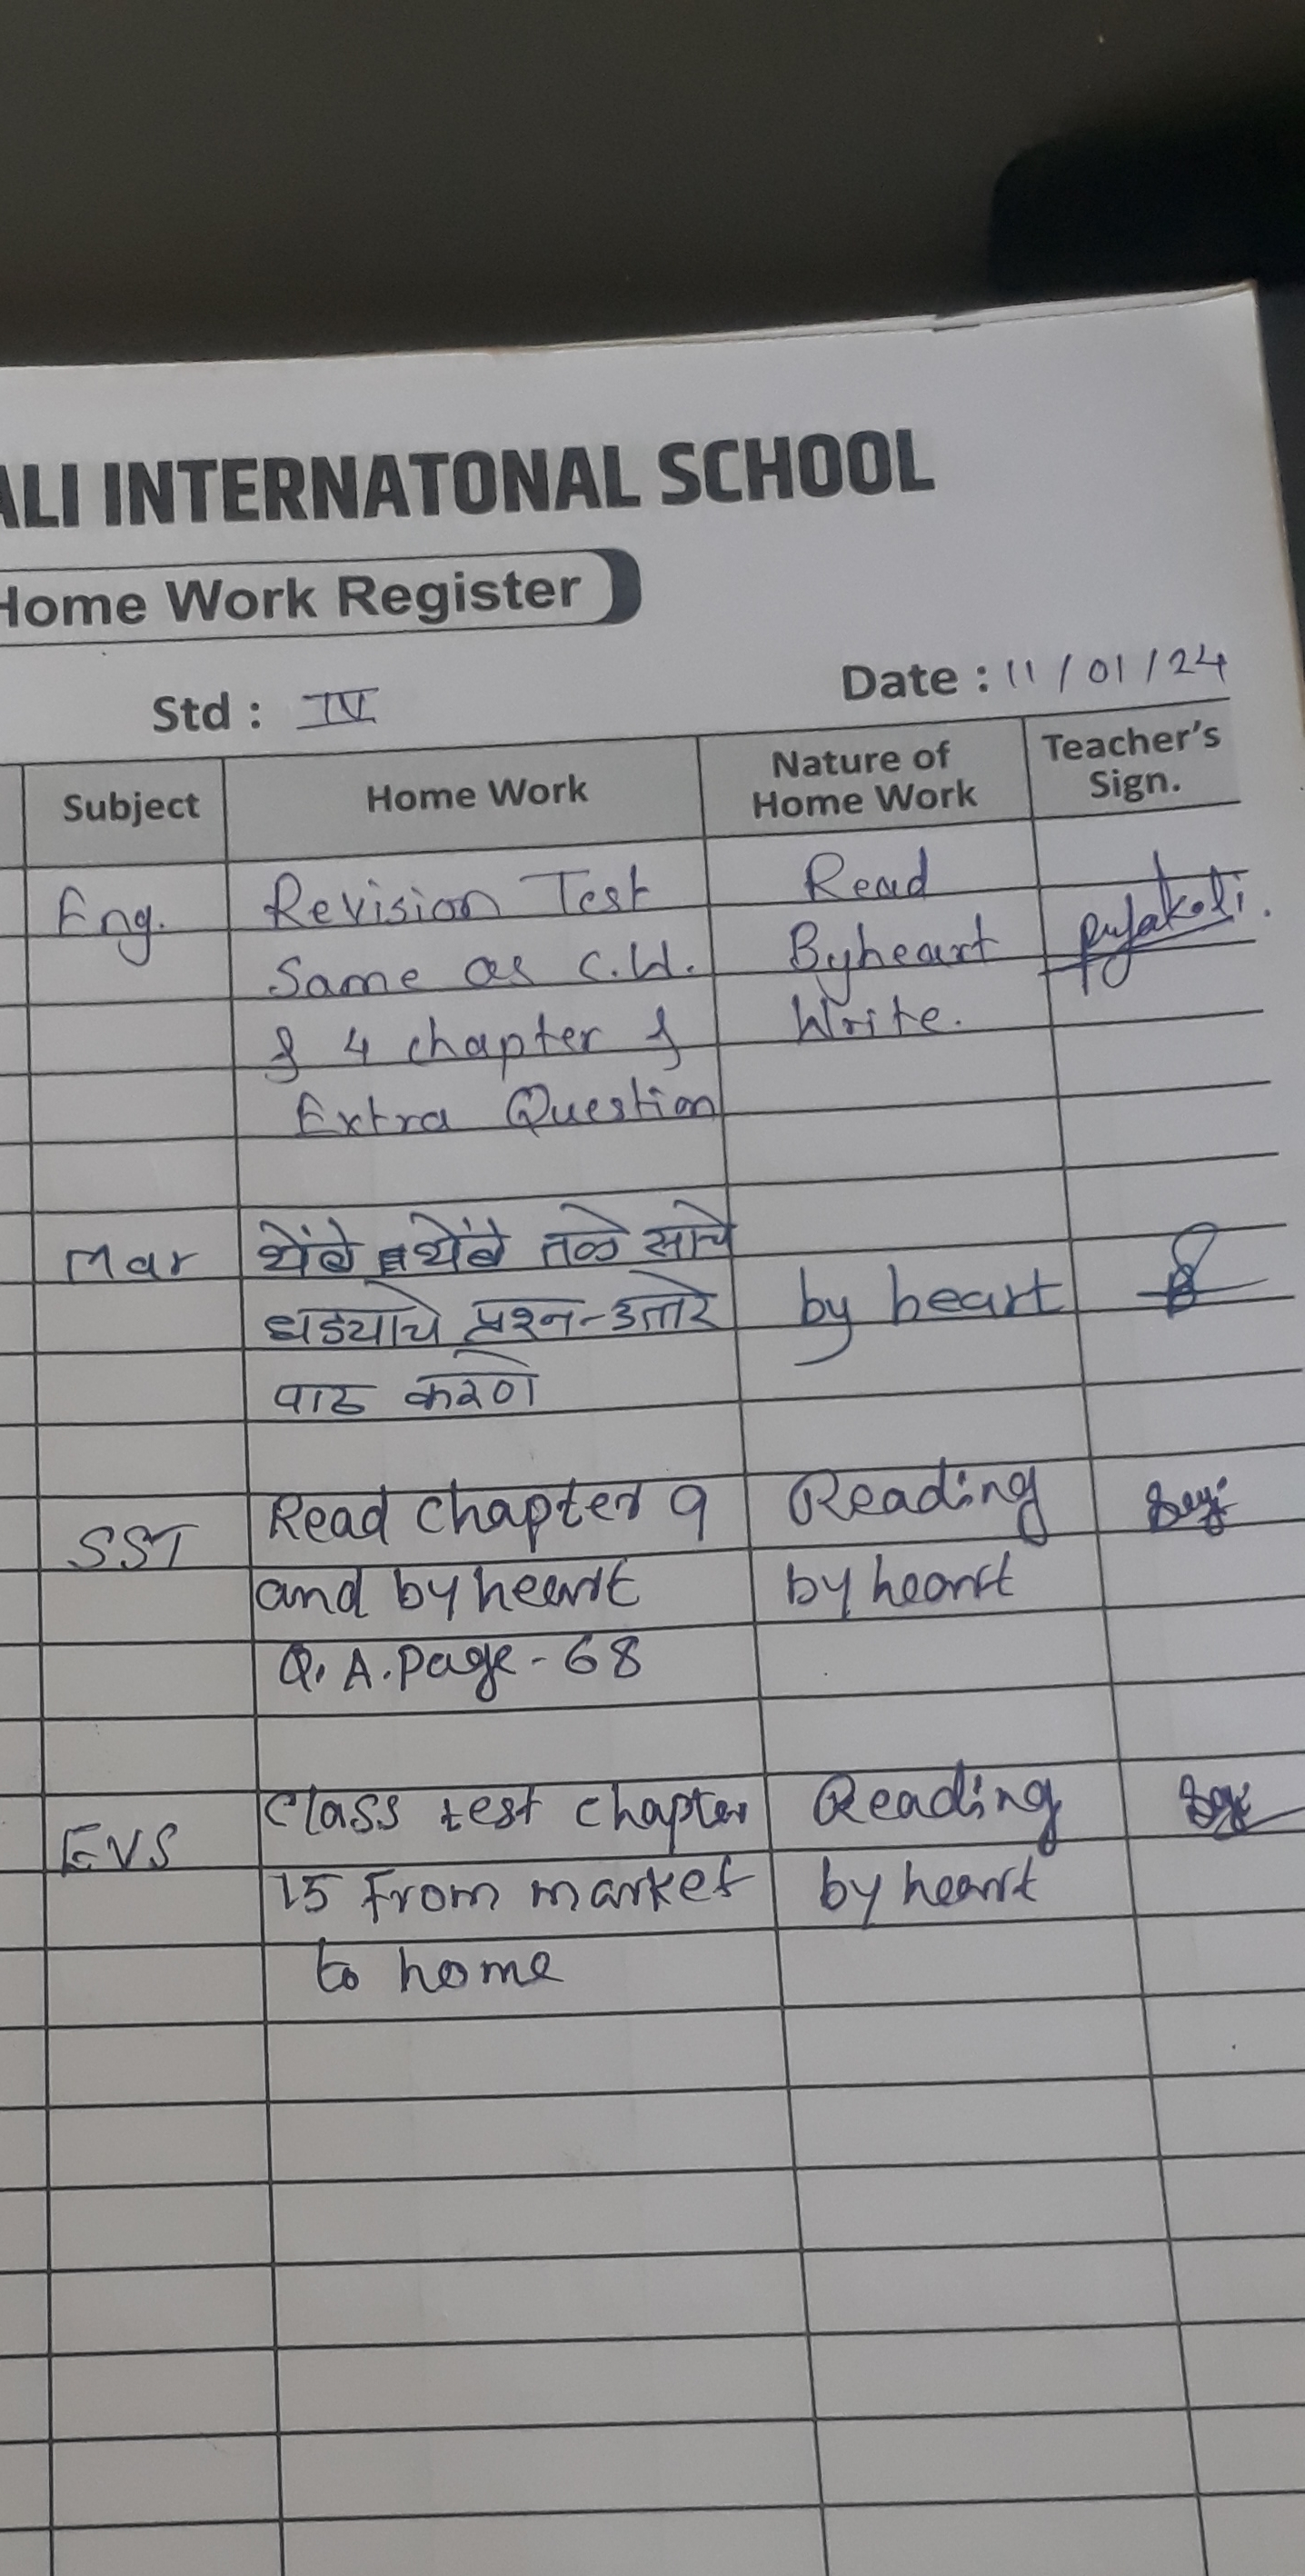 ALI INTERNATONAL SCHOOL
Home Work Register
Std : IV
Date : 11/01/24
Subject
Home Work
Nature of Home Work
Teacher's Sign.
Eng.
Revision Test
Same as C.W.
& 4 chapter &
Extra Question
Read
Byheart
Write.
Mar
थेंबे थेंबे तळे साचे
धड्याचे प्रश्न-उत्तरे
पाठ करणे
by heart
SST
Read chapter 9
and by heart
Q. A. Page - 68
Reading
by heart
EVS
Class test chapter
15 From market
to home
Reading
by heart